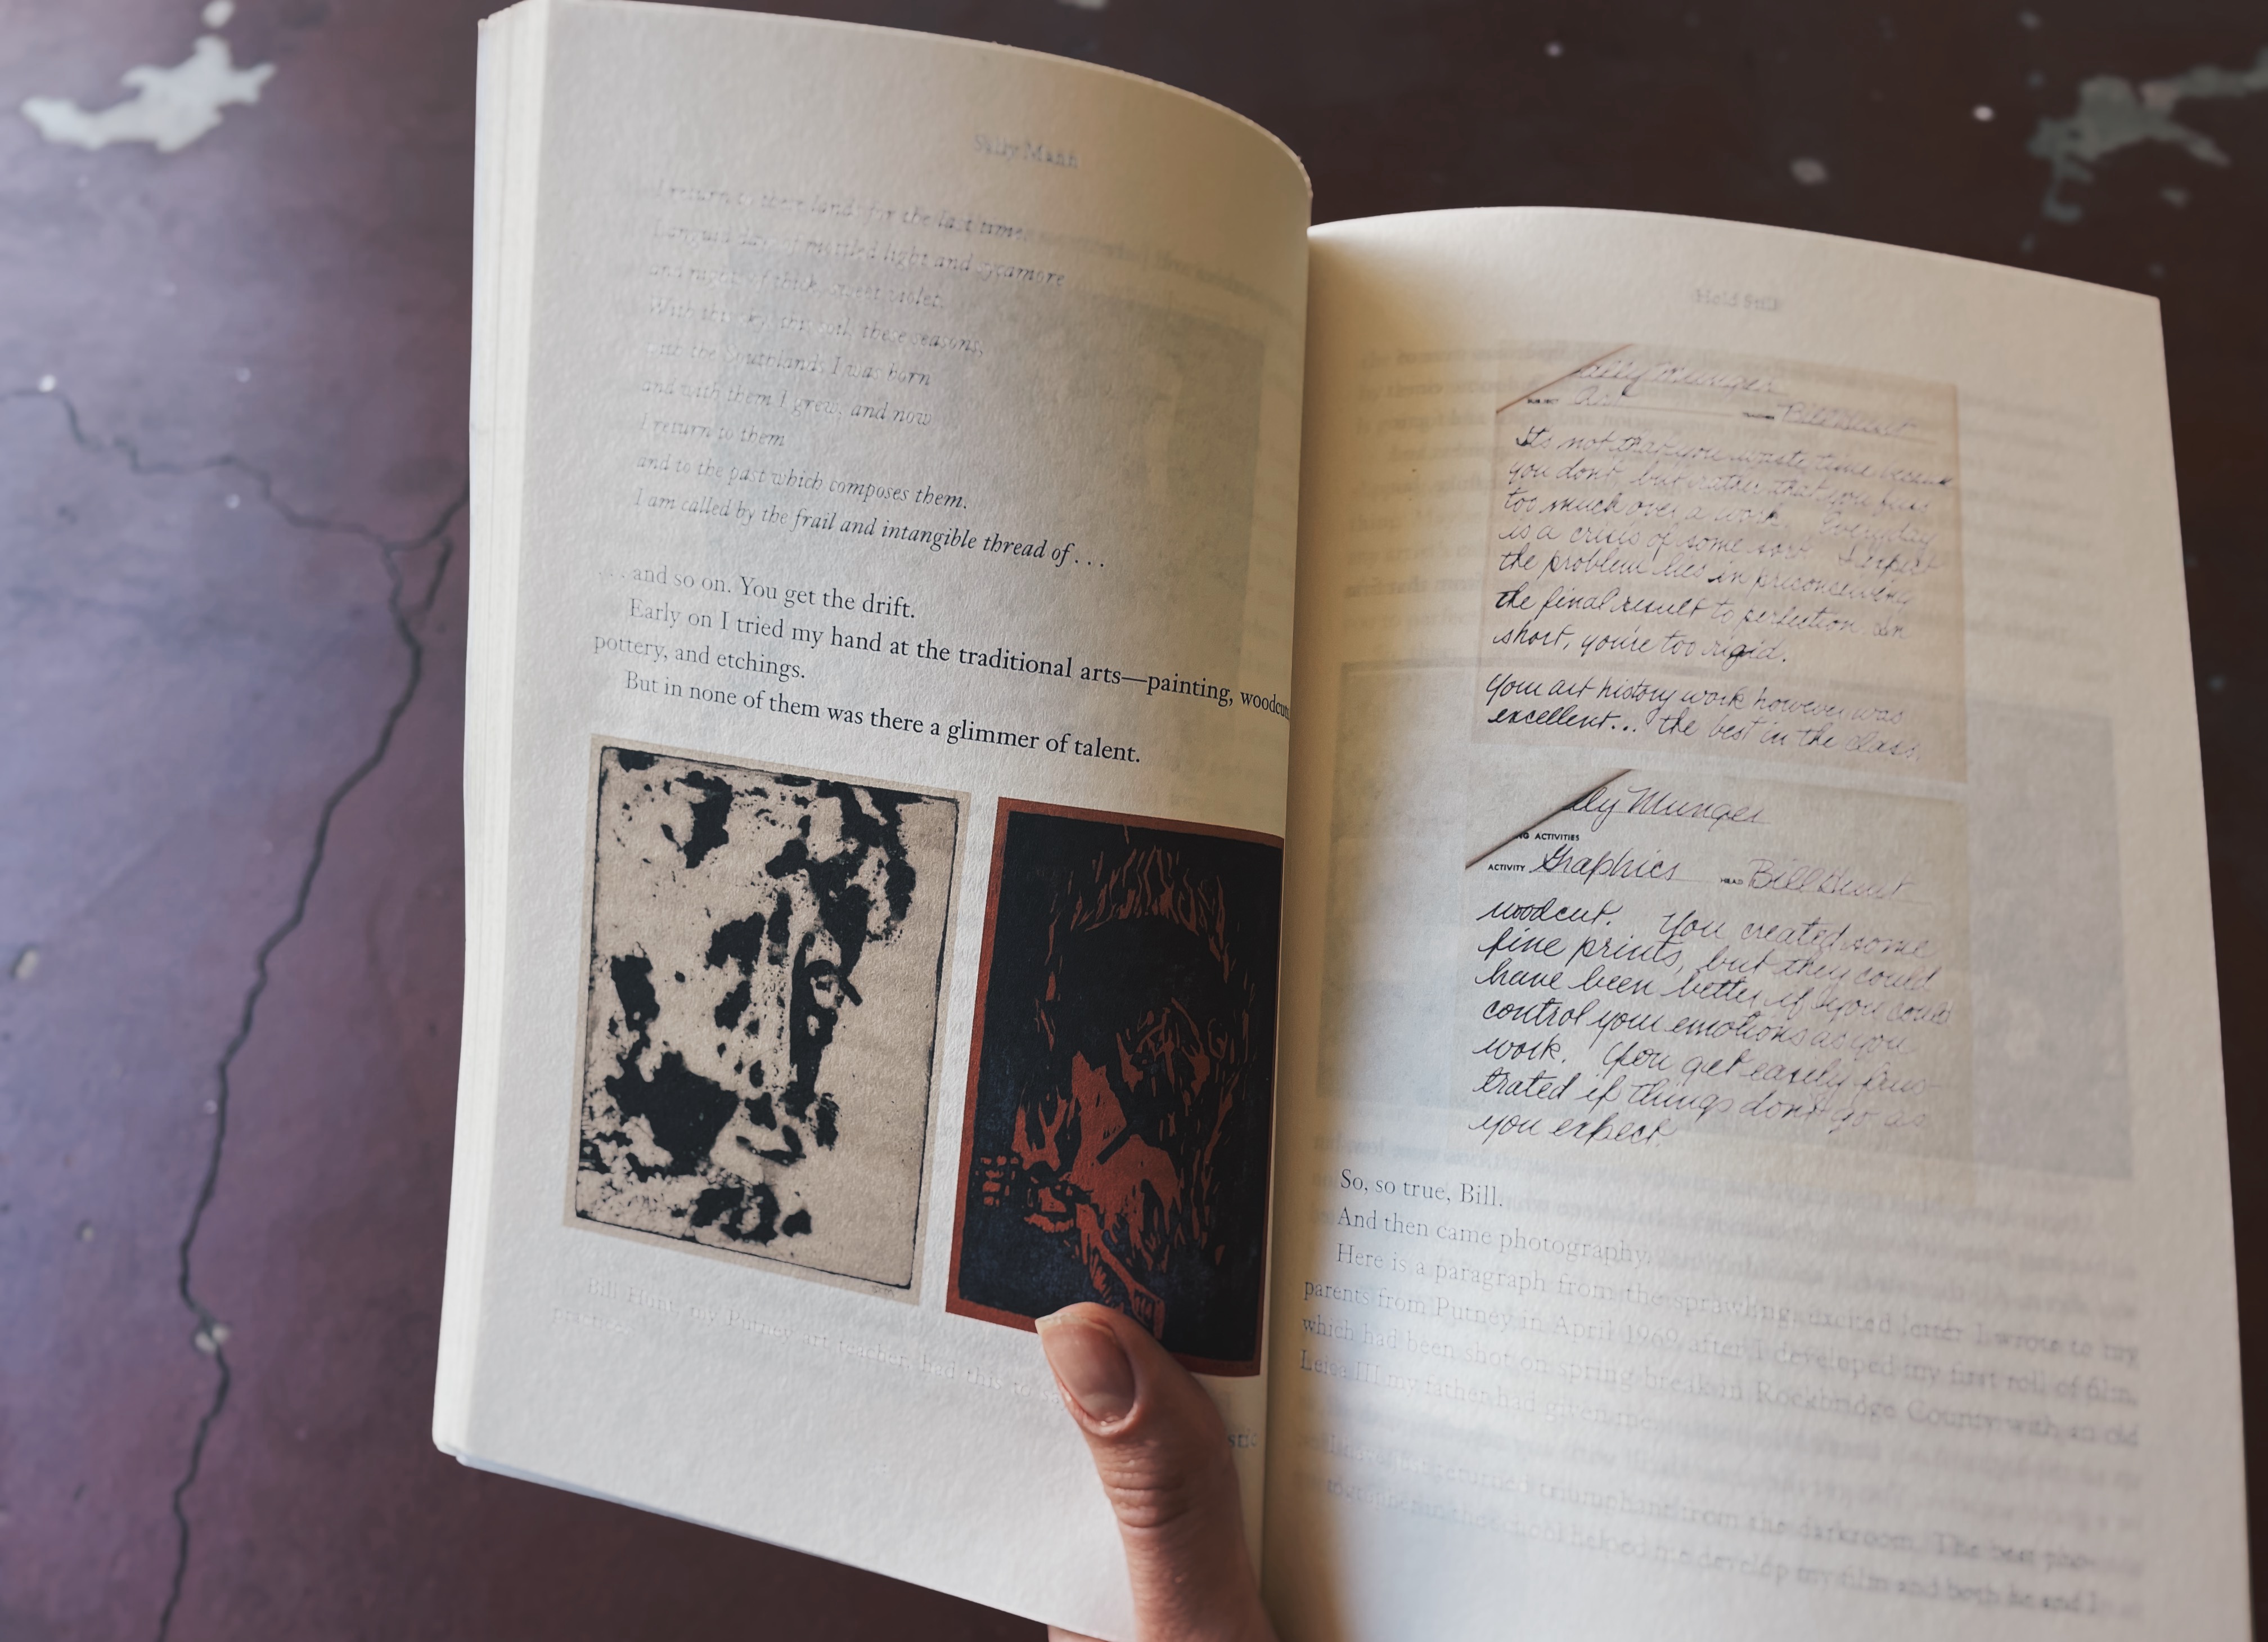 Sally Mann
I return to these lands for the last time
Languid days of mottled light and sycamore
and nights of thick, sweet violet.
With this sky, this soil, these seasons,
with the Southlands I was born
and with them I grew, and now
I return to them
and to the past which composes them.
I am called by the frail and intangible thread of . . .
. . . and so on. You get the drift.
Early on I tried my hand at the traditional arts—painting, woodcuts,
pottery, and etchings.
But in none of them was there a glimmer of talent.
Bill Hunt, my Putney art teacher, had this to
practice
stic
Hold Still
Sally Munger
SUBJECT Art Bill Hunt
Its not that you waste time because
you don't, but rather that you fuss
too much over a work. Everyday
is a crisis of some sort. I expect
the problem lies in preconceiving
the final result to perfection. In
short, you're too rigid.
Your art history work however was
excellent... the best in the class.
lly Munger
NG ACTIVITIES
ACTIVITY Graphics HEAD Bill Hunt
woodcut. You created some
fine prints, but they could
have been better if you could
control your emotions as you
work. You get easily frus
trated if things don't go as
you expect.
So, so true, Bill.
And then came photography.
Here is a paragraph from the sprawling, excited letter I wrote to my
parents from Putney in April 1969, after I developed my first roll of film,
which had been shot on spring break in Rockbridge County with an old
Leica III my father had given me.
returned triumphant from the darkroom. The best pho-
in the school helped me develop my film and both he and I